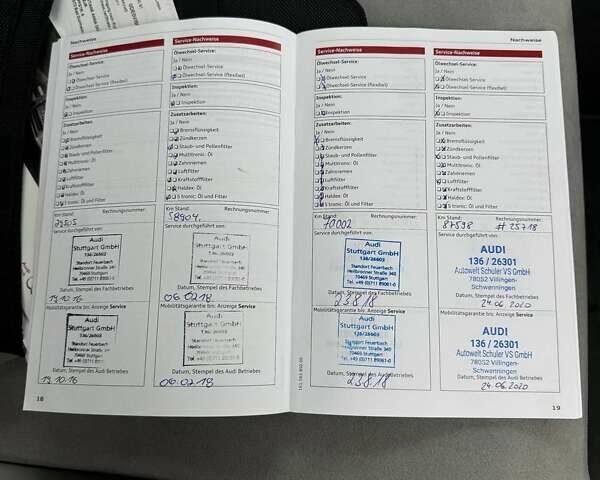 Nachweise
Service-Nachweise
Ölwechsel-Service:
Ja / Nein
Ölwechsel-Service
Ölwechsel-Service (flexibel)
Inspektion:
Ja / Nein
Inspektion
Zusatzarbeiten:
Ja / Nein
Bremsflüssigkeit
Zündkerzen
Staub- und Pollenfilter
Multitronic: Öl
Zahnriemen
Luftfilter
Kraftstofffilter
Haldex: Öl
S tronic: Öl und Filter
Km Stand: Rechnungsnummer:
Service durchgeführt von:
Audi
Stuttgart GmbH
136/26603
Standort Feuerbach
Heilbronner Straße 340
70469 Stuttgart
Datum, Stempel des Fachbetriebes
19.10.16
Mobilitätsgarantie bis: Anzeige Service
Audi
Stuttgart GmbH
Datum, Stempel des Audi Betriebes
19.10.16
18
Service-Nachweise
Ölwechsel-Service:
Ja / Nein
Ölwechsel-Service
Ölwechsel-Service (flexibel)
Inspektion:
Ja / Nein
Inspektion
Zusatzarbeiten:
Ja / Nein
Bremsflüssigkeit
Zündkerzen
Staub- und Pollenfilter
Multitronic: Öl
Zahnriemen
Luftfilter
Kraftstofffilter
Haldex: Öl
S tronic: Öl und Filter
Km Stand: Rechnungsnummer:
58904
Service durchgeführt von:
Audi
Stuttgart GmbH
Datum, Stempel des Fachbetriebes
06.02.18
Mobilitätsgarantie bis: Anzeige Service
Audi
Stuttgart GmbH
Datum, Stempel des Audi Betriebes
06.02.18
Service-Nachweise
Ölwechsel-Service:
Ja / Nein
Ölwechsel-Service
Ölwechsel-Service (flexibel)
Inspektion:
Ja / Nein
Inspektion
Zusatzarbeiten:
Ja / Nein
Bremsflüssigkeit
Zündkerzen
Staub- und Pollenfilter
Multitronic: Öl
Zahnriemen
Luftfilter
Kraftstofffilter
Haldex: Öl
S tronic: Öl und Filter
Km Stand: Rechnungsnummer:
70002
Service durchgeführt von:
Audi
Stuttgart GmbH
136/26603
Standort Feuerbach
Heilbronner Straße 340
70469 Stuttgart
Datum, Stempel des Fachbetriebes
23.8.18
Mobilitätsgarantie bis: Anzeige Service
Audi
Stuttgart GmbH
136/26603
Standort Feuerbach
Heilbronner Straße 340
70469 Stuttgart
Datum, Stempel des Audi Betriebes
23.8.18
Nachweise
Service-Nachweise
Ölwechsel-Service:
Ja / Nein
Ölwechsel-Service
Ölwechsel-Service (flexibel)
Inspektion:
Ja / Nein
Inspektion
Zusatzarbeiten:
Ja / Nein
Bremsflüssigkeit
Zündkerzen
Staub- und Pollenfilter
Multitronic: Öl
Zahnriemen
Luftfilter
Kraftstofffilter
Haldex: Öl
S tronic: Öl und Filter
Km Stand: Rechnungsnummer:
87598 # 25718
Service durchgeführt von:
AUDI
136 / 26301
Autowelt Schuler VS GmbH
78052 Villingen-
Schwenningen
Datum, Stempel des Fachbetriebes
24.06.2020
Mobilitätsgarantie bis: Anzeige Service
AUDI
136 / 26301
Autowelt Schuler VS GmbH
78052 Villingen-
Schwenningen
Datum, Stempel des Audi Betriebes
24.06.2020
19